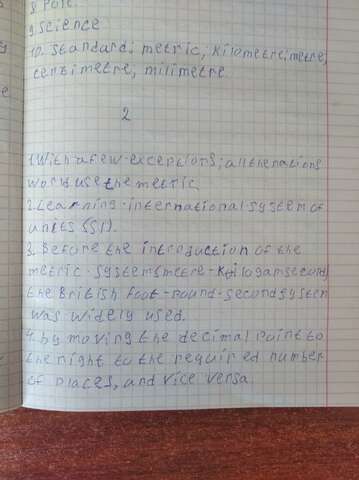 8. Pole.
9. Science
10. Standard; metric; kilometre; metre;
centimetre, milimetre
2
1. With a few exceptions; all the nations
world use the metric.
2. Learning-international-system of
units (SI).
3. Before the introduction of the
metric-systemsmetre-kilogamsecond
the British foot-pound-secondsyster
was widely used.
4. by moving the decimal point to
the right to the required number
of places, and vice versa.